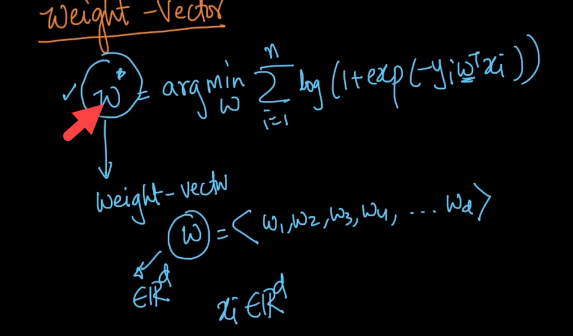 Weight-Vector
w* = argmin_w Σ_{i=1}^{n} log(1+exp(-y_i w^T x_i))
Weight-vectr
w = <w_1, w_2, w_3, w_4, ... w_d>
∈ℝ^d
x_i ∈ ℝ^d